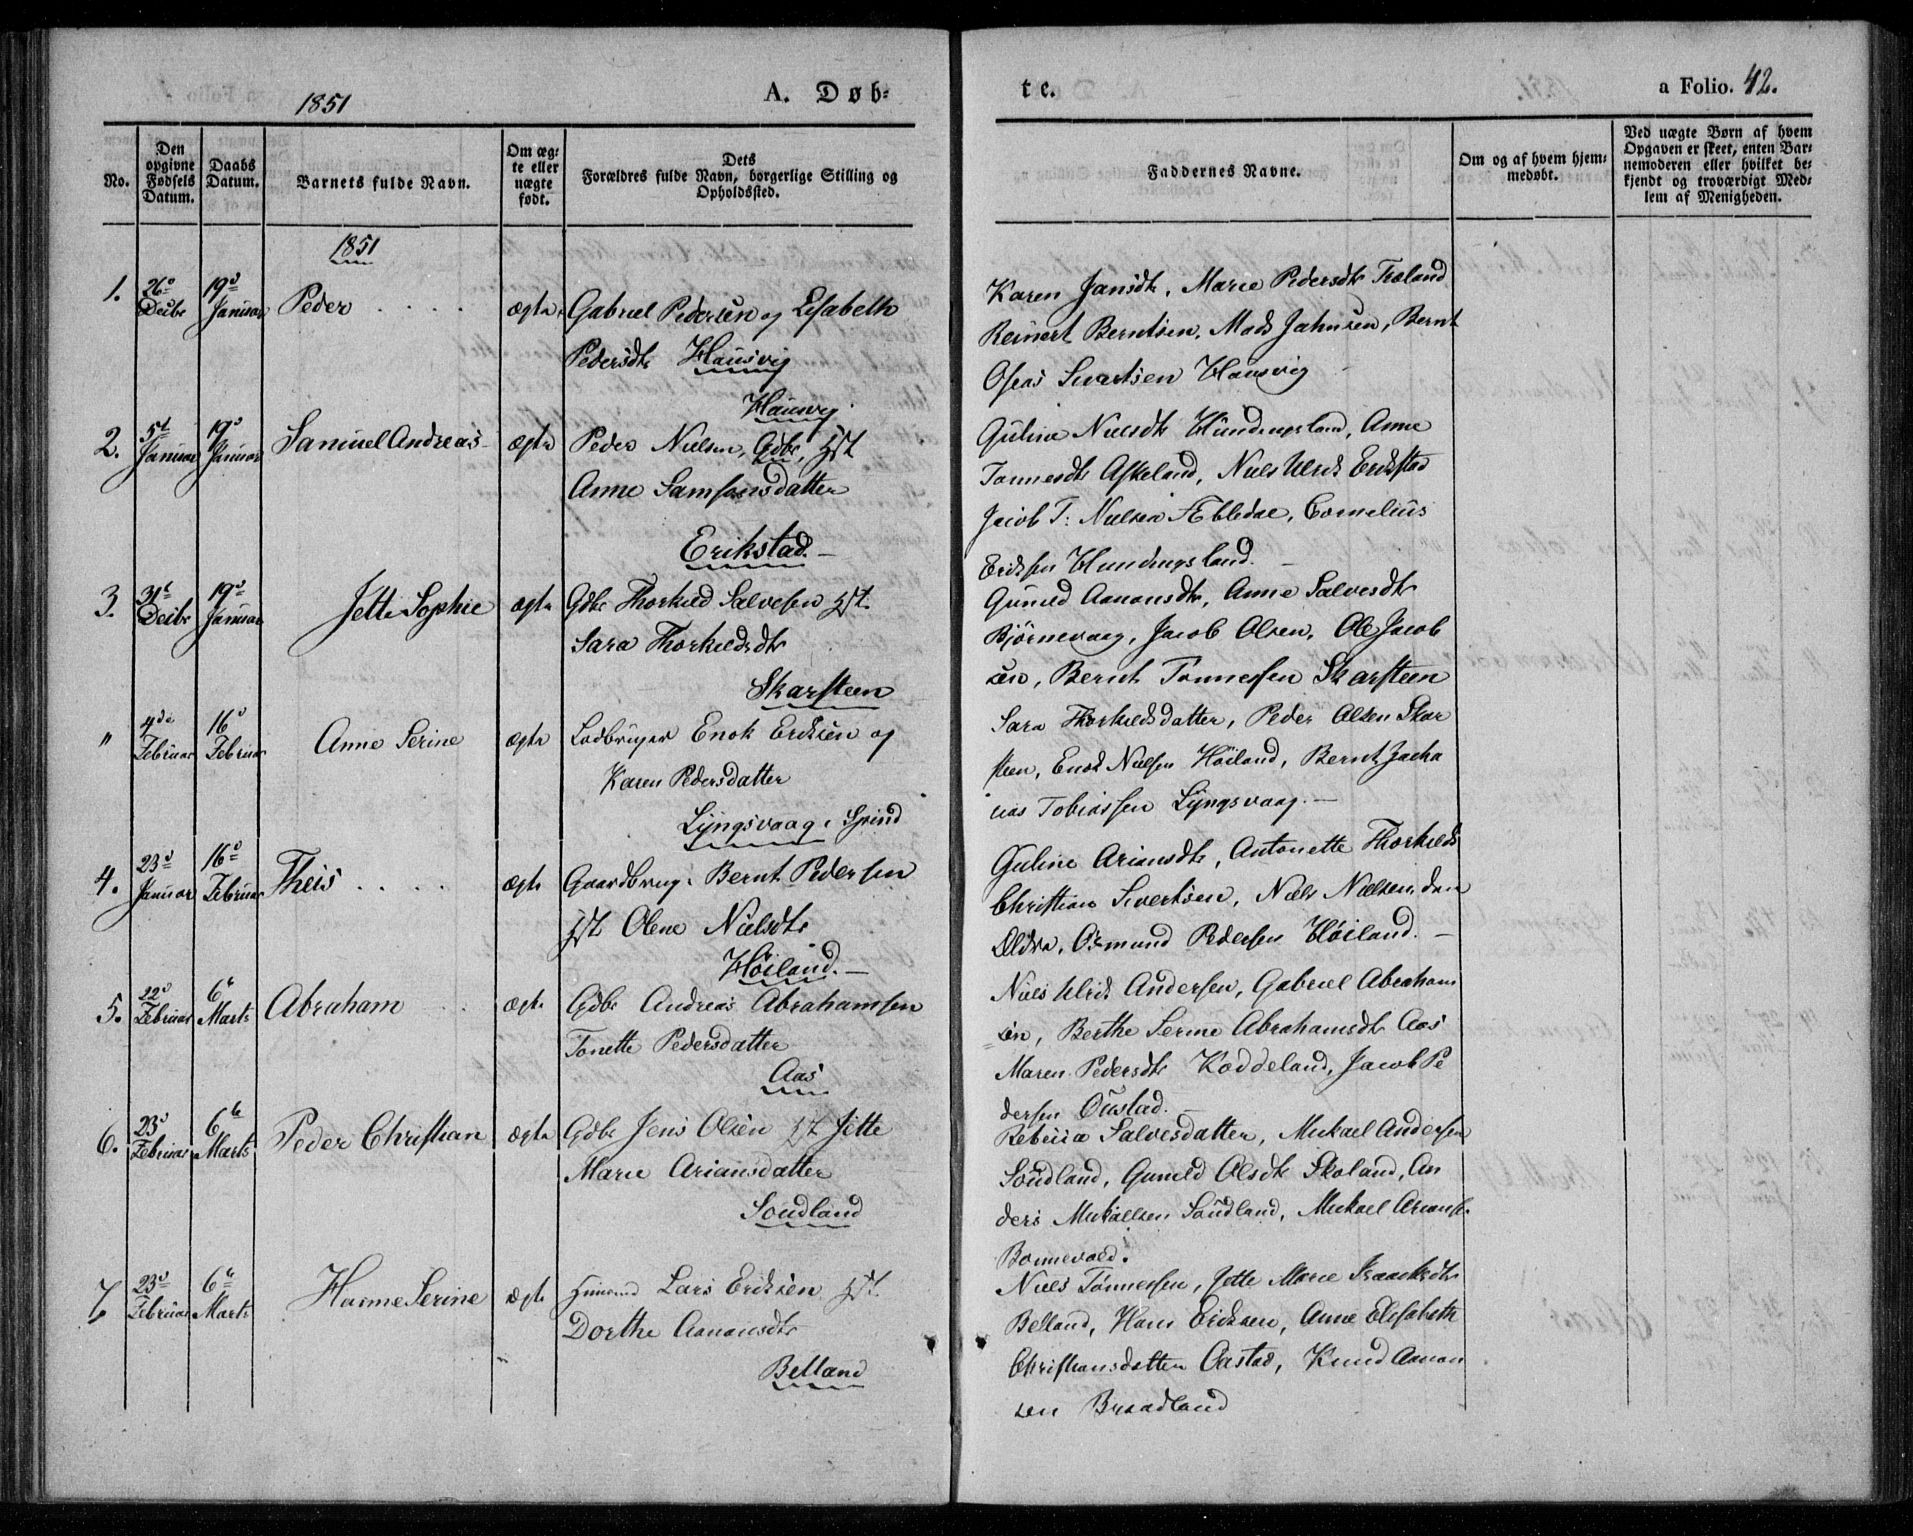 1851
A. Døb-
te.
a Folio. 42.
No.
Den opgivne Fødsels Datum.
Daabs Datum.
Barnets fulde Navn.
Om æg-
te eller
uægte
født.
Dets
Forældres fulde Navn, borgerlige Stilling og
Opholdssted.
Faddernes Navne.
Om og af hvem hjem-
medøbt.
Ved uægte Børn af hvem
Opgaven er skeet, enten Bar-
nemoderen eller hvilket be-
kjendt og troværdigt Med-
lem af Menigheden.
1851
1. 26 Decbr 19 Januar Peder . . . . ægte Gabriel Pedersen og Elisabeth
Pedersdtr Hausvig
Karen Jansdtr, Marie Pedersdtr
Reinert Berntsen, Mads Jahnsen, Bernt
Oseas Sivertsen Hausvig
2. 5t Januar 19 Januar Samuel Andreas ægte Peder Nielsen, Gdbr,
Hausvig
Anne Samsonsdatter
Erikstad.
Guline Nielsdtr Hundingsland, Anne
Tonnesdtr Askeland, Niels Ulrik Erikstad
Jacob T: Nielsen Æbledal, Cornelius
Eriksen Hundingsland.
3. 31t Decbr 19 Januar Jette Sophie ægte Gdbr Thorkild Salvesen
Sara Thorkildsdtr
Skarsteen
Gunild Aanonsdtr, Anne Salvesdtr
Bjørnevaag, Jacob Olsen, Ole Jacob
sen, Bernt Tønnessen Skarsteen
" 4de Februar 16 Februar Anne Serine ægte Enok Eriksen og
Karen Pedersdatter
Lyngsvaag i Spind
Sara Thorkildsdatter, Peder Olsen Skar
steen, Enok Nielsen Høiland, Bernt Zacha
rias Tobiassen Lyngsvaag.
4. 23 Januar 16 Februar Theis . . . . ægte Gaardbrug. Bernt Pedersen
Olene Nielsdtr
Høiland.
Guline Ariansdtr, Antonette Thorkilds
Christian Sivertsen, Niels Nielsen den
Ældre, Osmund Pedersen Høiland.
5. 22 Februar 6te Marts Abraham ægte Gdbr Andreas Abrahamsen
Tonette Pedersdatter
Aas
Niels Ulrik Andersen, Gabriel Abraham
sen, Berthe Serine Abrahamsdtr Aas
Maren Pedersdtr Koddeland, Jacob Pe
dersen Oustad.
6. 23 Februar 6te Marts Peder Christian ægte Gdbr Jens Olsen Jette
Marie Ariansdatter
Soudland
Rebecca Salvesdatter, Mickael Andersen
Soudland, Gunild Olsdtr Skoland, An
ders Mickaelsen Soudland, Mickael Arians.
Bonnevold.
7 23 Februar 6te Marts Hanne Serine ægte Huusmd Lars Eriksen
Dorthe Aanonsdtr
Belland
Niels Tønnessen, Jette Marie
Belland, Hans Eriksen, Anne Elisabeth
Christiansdatter Oustad, Knud Aanon
sen Braadland